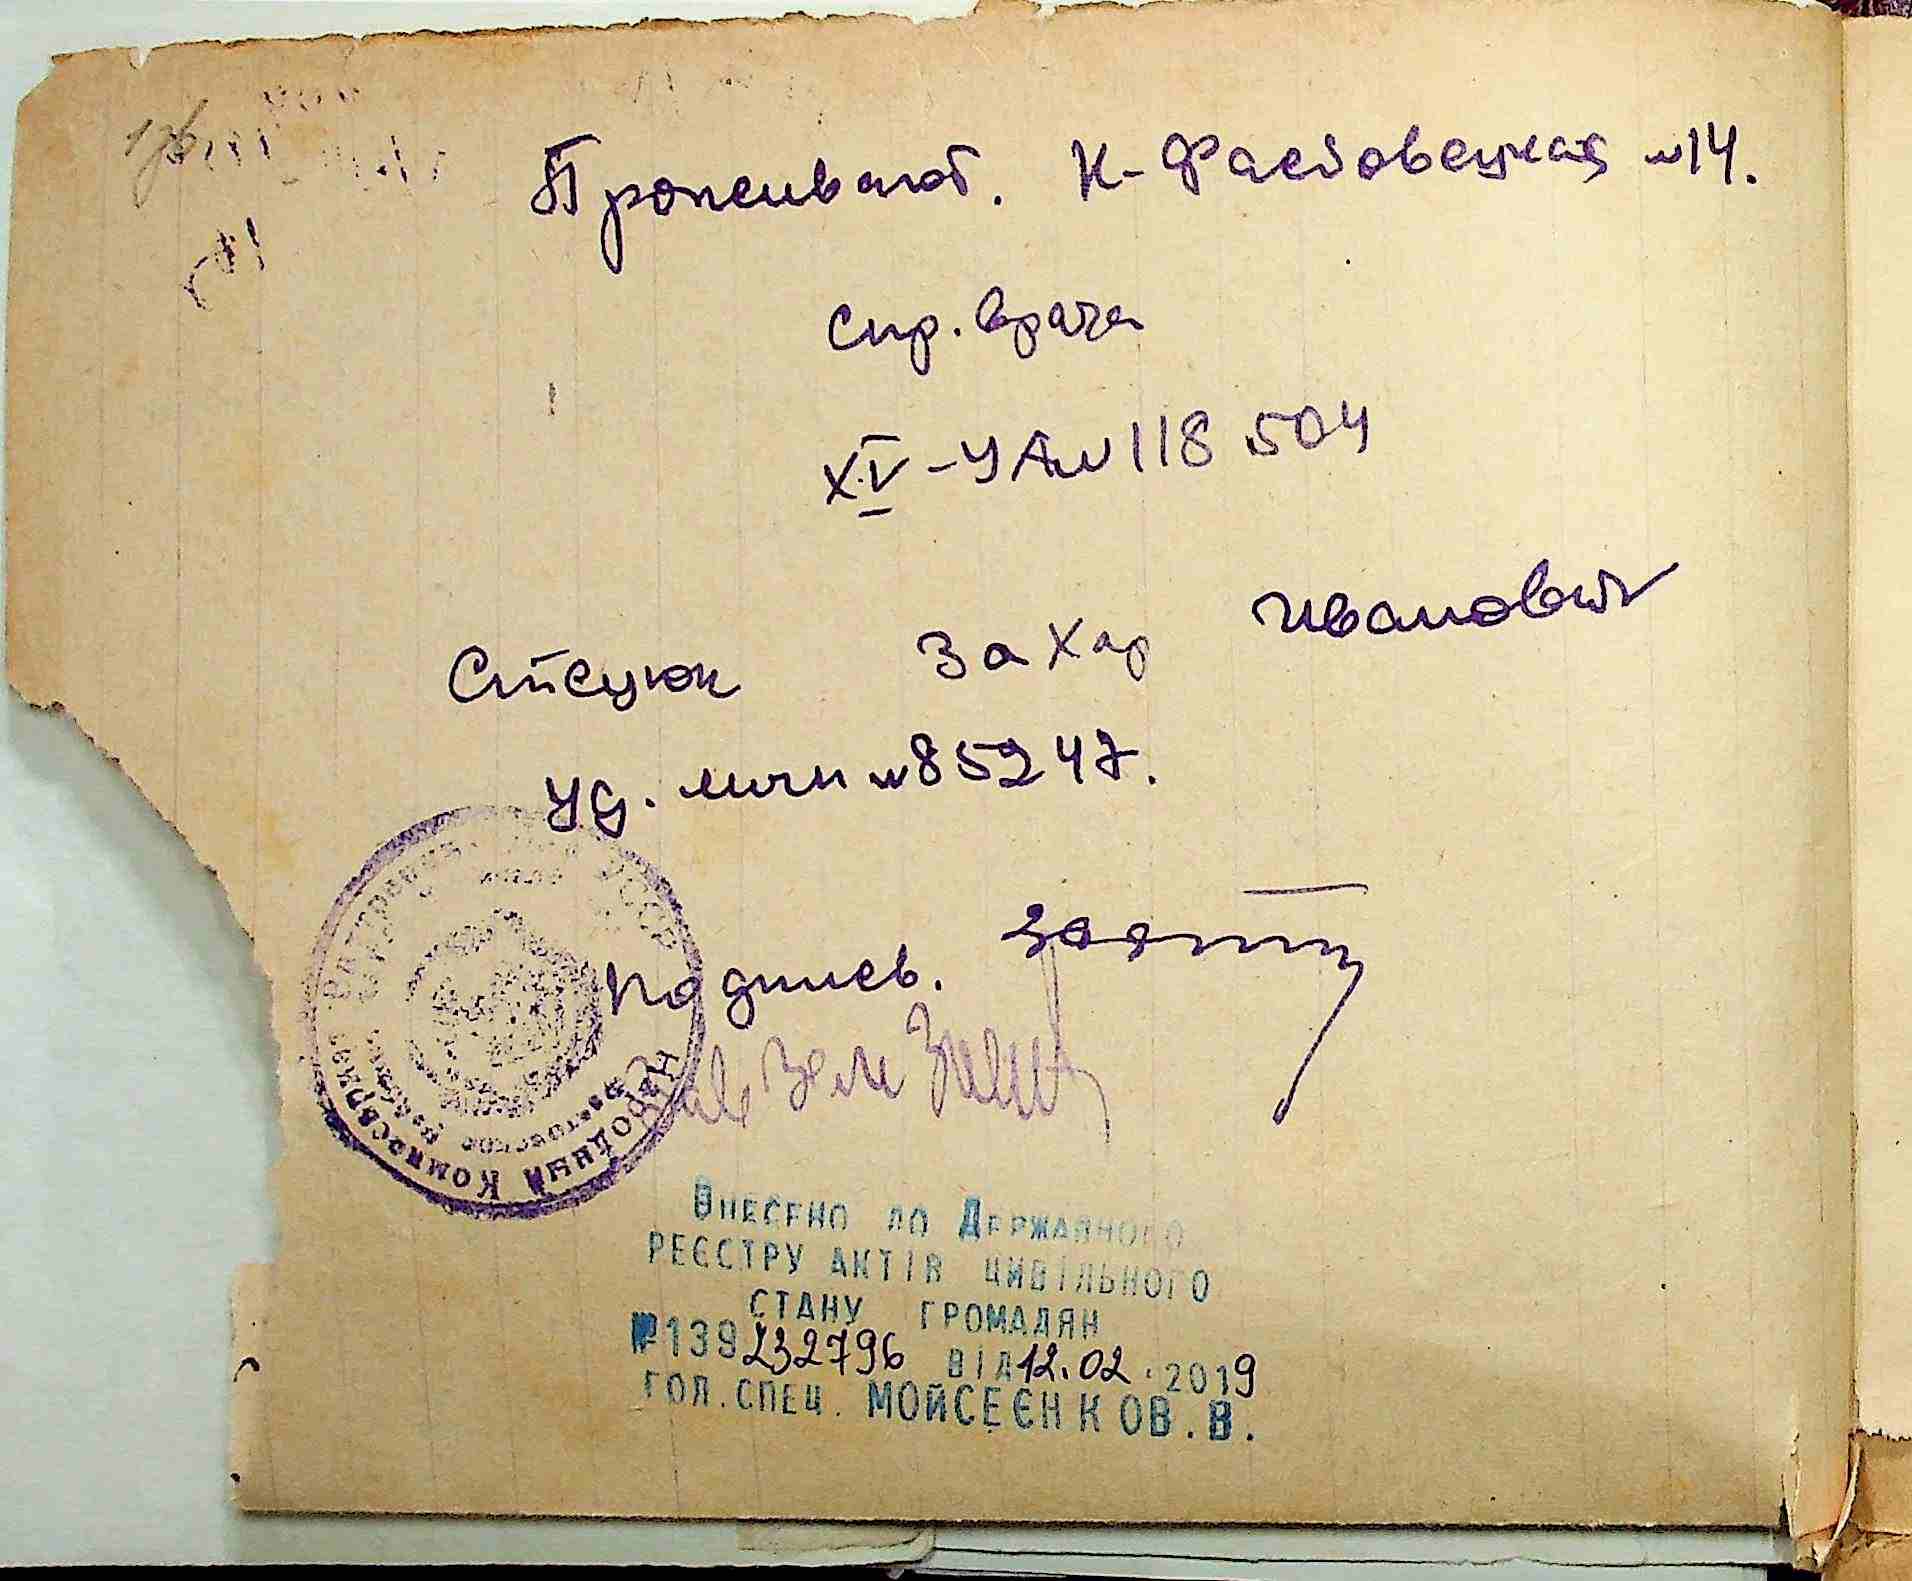 Проживают. К-Фастовецкая №14.
спр. врача
XIV-УА№118504
Стецюк Захар Иванович
уд. личн №85247.
подпись.
Народный Комиссариат
УССР
Внесено до Державного
реєстру актів цивільного
стану громадян
№139232796 від 12.02.2019
гол. спец. Мойсеєнко В.В.